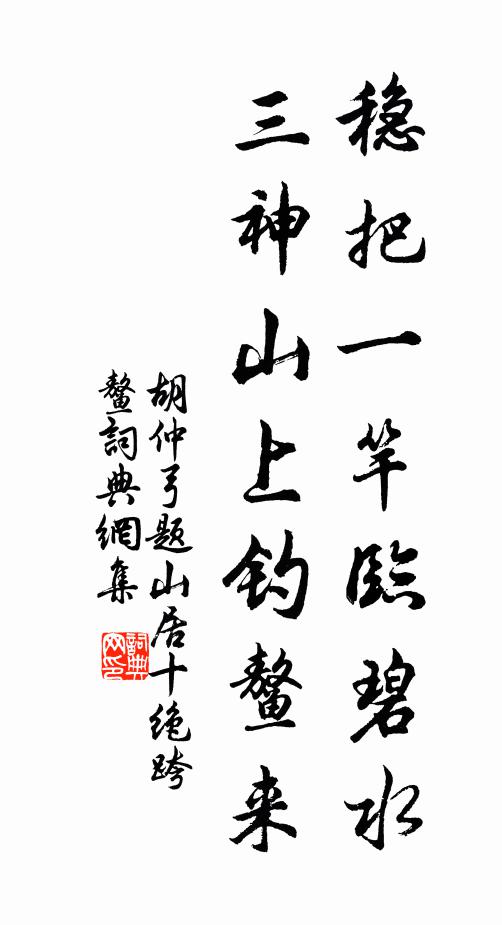 稳把一竿臨碧水
三神山上钓鳌来
胡仲弓题山居十绝跨
鳌詞典網集
詞典
网印